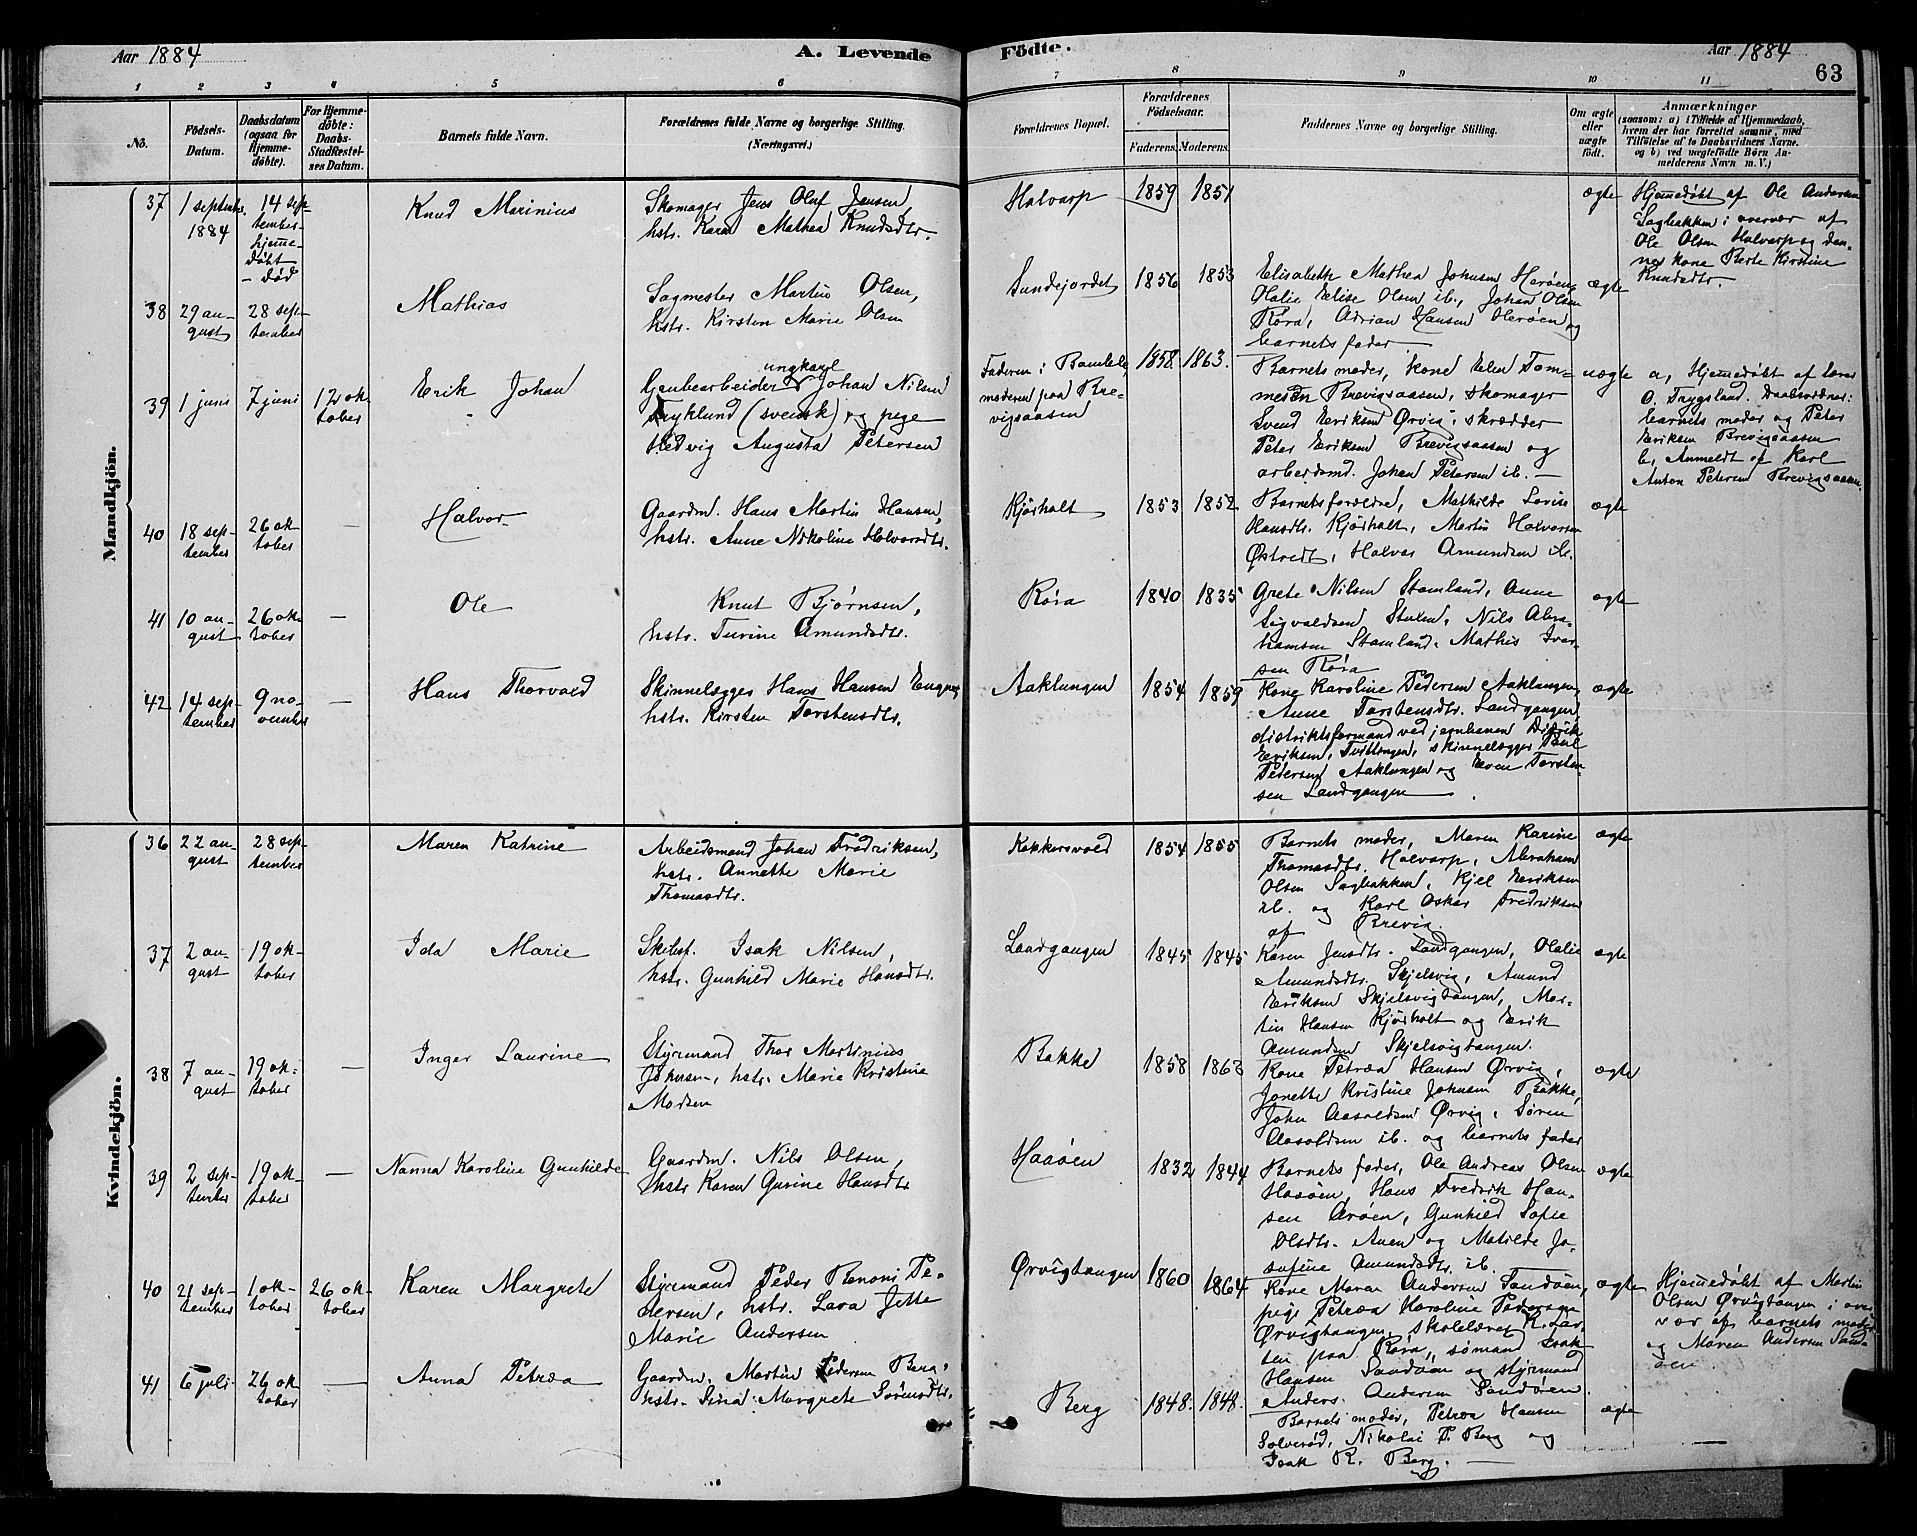 Aar 1884
A. Levende
Födte.
Aar 1884
63
1 2 3 4 5 6
7 8 9 10 11
No.
Födsels-
Datum.
Daabsdatum
(ogsaa for
Hjemme-
döbte).
For Hjemme-
döbte:
Daabs-
Stadfæstel-
ses Datum.
Barnets fulde Navn.
Forældrenes fulde Navne og borgerlige Stilling.
(Næringsvei.)
Forældrenes Bopæl.
Forældrenes
Födselsaar.
Faderens. Moderens.
Faddernes Navne og borgerlige Stilling.
Om ægte
eller
uægte
födt.
Anmærkninger
(saasom: a) i Tilfælde af Hjemmedaab,
hvem der har forrettet samme, med
Tilföielse af to Daabsvidners Navne.
og b) ved uægtefödte Börn An-
melderens Navn m. V.)
Mandkjön.
37
1 septbr.
1884
14 sep-
tember
hjeme-
døbt
- død
Knud Marinius
Skomager Jens Oluf Jensen,
hstr. Karen Mathea Knudsdtr.
Halvarp
1859 1851
ægte
Hjemedøbt af Ole Andersen
Sagbakken i overvær af
Ole Olsen Halvarp og den-
nes kone Berte Kirstine
Knudsdtr.
38
29 au-
gust
28 sep-
tember
Mathias
Sagmester Martin Olsen,
hstr. Kirsten Marie Olsen
Sundejordet
1856 1853
Elisabeth Mathea Johnsen Herøen,
Olalie Elise Olsen ib., Johan Olsen
Röra, Adrian Hansen Herøen og
barnets fader
ægte
39
1 juni
7 juni
12 ok-
tober
Erik Johan
ungkarl
Grubearbeider Johan Nilsen
Fryklund (svensk) og pige
Hedvig Augusta Petersen
Faderen i Bamble,
moderen paa Bre-
vigsaasen
1858. 1863.
Barnets moder, kone Elen Tom-
mesen Brevigsaasen, skomager
Svend Eriksen Ørvig, skrædder
Peter Eriksen Brevigsaasen og
arbeidsmd. Johan Petersen ib. —
uægte
a, Hjemedøbt af lærer
O. Trygsland. Daabsvidner:
barnets moder og Peter
Eriksen Brevigsaasen
b, Anmeldt af Karl
Anton Petersen Brevigsaasen.
40
18 sep-
tember
26 ok
tober
—
Halvor
Gaardm. Hans Martin Hansen,
hstr. Anne Nikoline Halvorsdtr.
Kjørholt
1853 1852
Barnets forældre, Mathilde Lovise
Hansdtr. Kjørholt, Martin Halvorsen
Østvedt, Halvor Amundsen ib.
ægte
41
10 au-
gust
26 ok-
tober
—
Ole
Knut Bjørnsen,
hstr. Turine Amundsdtr.
Röra
1840 1835
Grete Nilsen Stamland, Anne
Sigvaldsen Stulen, Nils Abra-
hamsen Stamland, Mathis Iver-
sen Röra
ægte
42
14 sep-
tember
9 no-
vember
—
Hans Thorvald
Skinnelægger Hans Hansen Engnes,
hstr. Kirsten Torstensdtr.
Aaklungen
1854 1859
Kone Karoline Pedersen Aaklungen,
Anne Torstensdtr. Landgangen,
distriktsformand ved jernbanen Didrik
Eriksen, Tvittingen, skinnelægger Paul
Pedersen Aaklungen og Even Torsten-
sen Landgangen
ægte
Kvindekjön.
36
22 au-
gust
28 sep-
tember
Maren Katrine
Arbeidsmand Johan Fredriksen,
hstr. Annette Marie
Thomasdtr.
Kokkersvold
1854 1855
Barnets moder, Maren Karine
Thomasdtr. Halvarp, Abraham
Olsen Sagbakken, Kjel Eriksen
ib. og Karl Oskar Fredriksen
af Brevig.
ægte
37
2 au-
gust
19 ok-
tober
Ida Marie
Skibsf. Isak Nilsen,
hstr. Gunhild Marie Hansdtr.
Landgangen
1845 1845
Karen Jensdtr. Landgangen, Olalie
Amundsdtr. Skjelsvig, Amund
Eriksen Skjelsvigtangen, Mar-
tin Hansen Kjørholt og Erik
Amundsen Skjelsvigtangen.
ægte
38
7 au-
gust
19 ok-
tober
—
Inger Laurine
Styrmand Thor Martinius
Johnsen, hstr. Marie Kristine
Madsen
Bakke
1858 1863
Kone Petræa Hansen Ørvig,
Jonette Kristine Johnsen Bakke,
John Aasoldsen Ørvig, Søren
Aasoldsen ib. og barnets fader
ægte
39
2 sep-
tember
19 ok-
tober
—
Nanna Karoline Gunhilde
Gaardm. Nils Olsen,
hstr Karen Gurine Hansdtr
Haaøen
1832 1844
Barnets fader, Ole Andreas Olsen
Haaøen, Hans Fredrik Han-
sen Arøen, Gunhild Sofie
Olsdtr. Auen og Matilde Jo-
sefine Amundsdtr. ib.
ægte
40
21 sep-
tember
1 ok-
tober
26 ok-
tober
Karen Margrete
Styrmand Peder Benoni Pe-
dersen, hstr. Lava Jette
Marie Andersen
Ørvigtangen
1860 1864
Kone Maren Andersen Sandøen,
pige Petræa Karoline Pedersen
Ørvigtangen, skolelærer K. Lar-
sen paa Röra, sømand Isak
Hansen Sandøen og styrmand
Anders Andersen Sandøen.
ægte
Hjemedøbt af Martin
Olsen Ørvigtangen i over
vær af barnets moder
og Maren Andersen Sand-
øen.
41
6 juli
26 ok
tober
—
Anna Petræa
Gaardm. Martin Pedersen Berg,
hstr. Sina Margrete Sörensdtr.
Berg
1848. 1848.
Barnets moder, Petræa Hansen
Solverød, Nikolai P. Berg og
Isak R. Berg. —
ægte